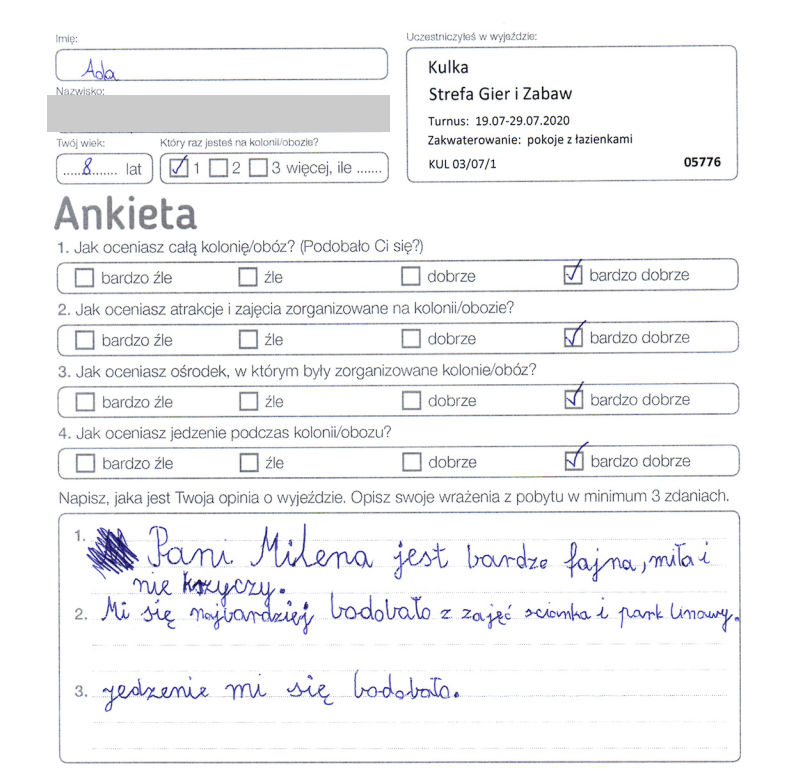 Imię:
Uczestniczyłeś w wyjeździe:
Ada
Kulka
Strefa Gier i Zabaw
Nazwisko:
Turnus: 19.07-29.07.2020
Zakwaterowanie: pokoje z łazienkami
KUL 03/07/1 05776
Twój wiek: Który raz jesteś na kolonii/obozie?
.....8....... lat 1 2 3 więcej, ile .......
Ankieta
1. Jak oceniasz całą kolonię/obóz? (Podobało Ci się?)
bardzo źle źle dobrze bardzo dobrze
2. Jak oceniasz atrakcje i zajęcia zorganizowane na kolonii/obozie?
bardzo źle źle dobrze bardzo dobrze
3. Jak oceniasz ośrodek, w którym były zorganizowane kolonie/obóz?
bardzo źle źle dobrze bardzo dobrze
4. Jak oceniasz jedzenie podczas kolonii/obozu?
bardzo źle źle dobrze bardzo dobrze
Napisz, jaka jest Twoja opinia o wyjeździe. Opisz swoje wrażenia z pobytu w minimum 3 zdaniach.
1. Pani Milena jest bardzo fajna, miła i
nie krzyczy.
2. Mi się najbardziej bodobało z zajęć scianka i park linowy.
3. jedzenie mi się bodobało.